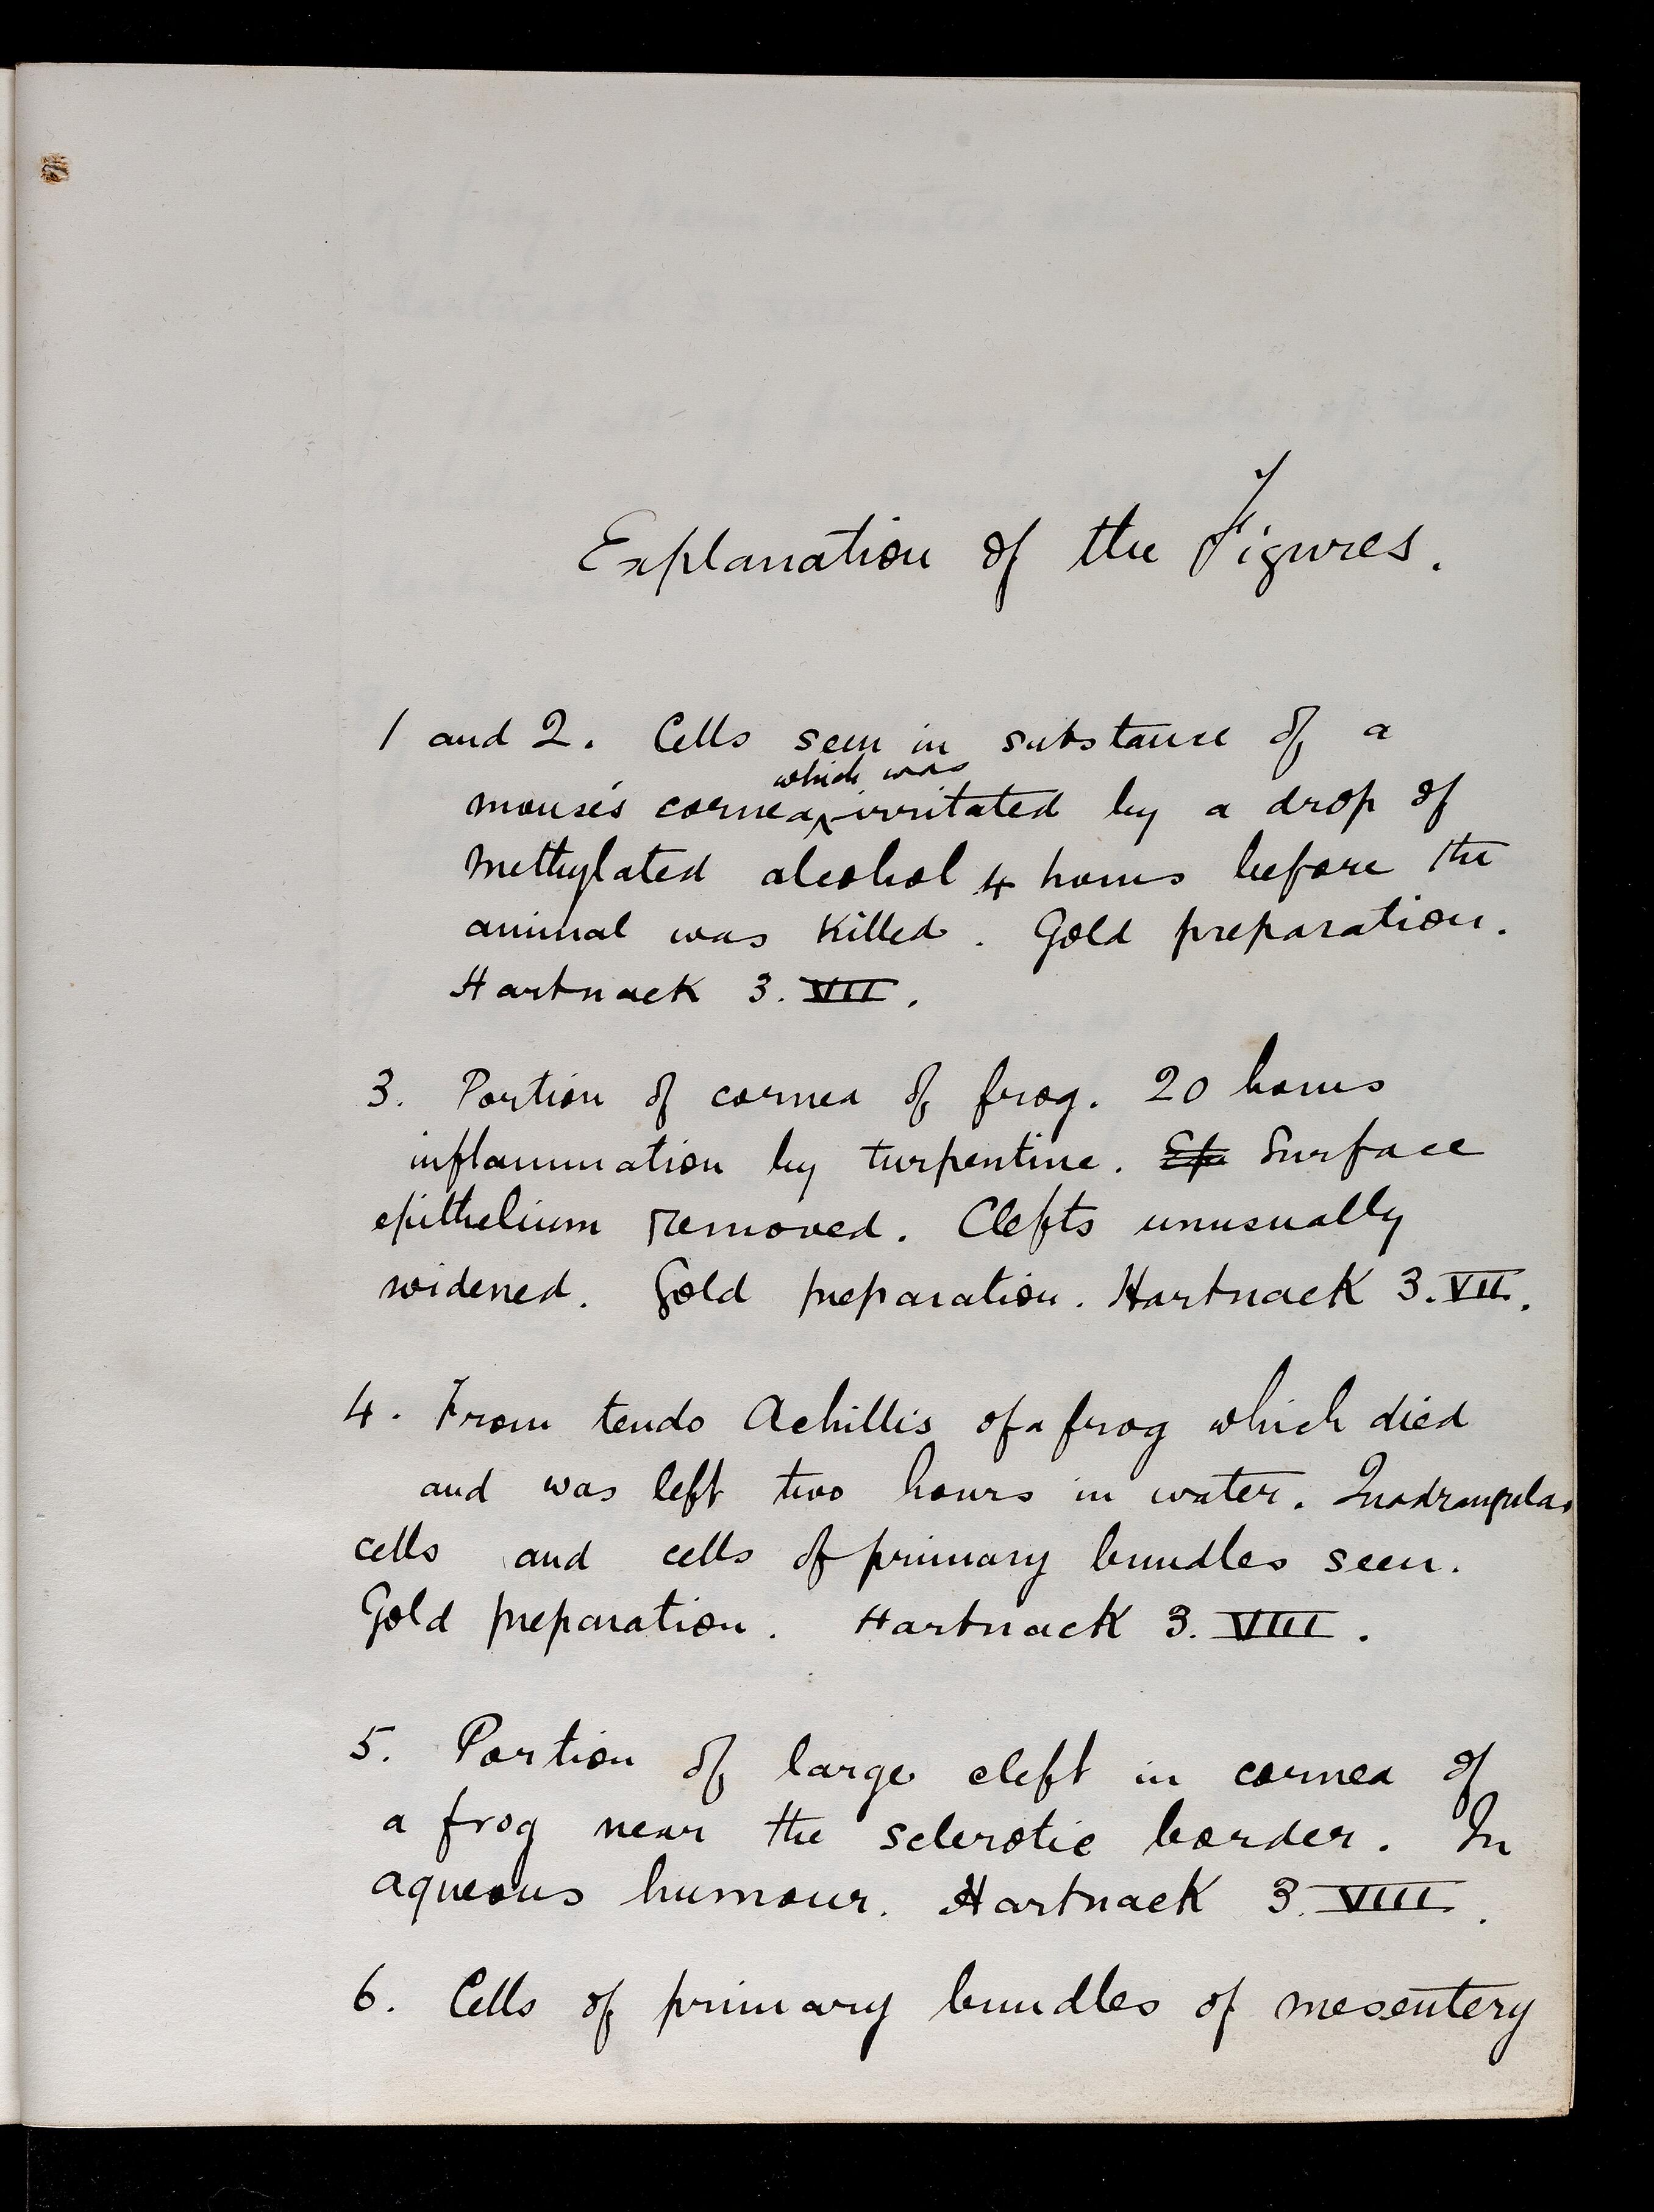 Explanation of the Figures.
1 and 2. Cells seen in substance of a
which was
mouse's cornea irritated by a drop of
methylated alcohol 4 hours before the
animal was killed. Gold preparation.
Hartnack 3. VII.
3. Portion of cornea of frog. 20 hours
inflammation by turpentine. Surface
epithelium removed. Clefts unusually
widened. Gold preparation. Hartnack 3. VII.
4. From tendo Achillis of a frog which died
and was left two hours in water. Quadrangular
cells and cells of primary bundles seen.
Gold preparation. Hartnack 3. VIII.
5. Portion of large cleft in cornea of
a frog near the sclerotic border. In
aqueous humour. Hartnack 3. VIII.
6. Cells of primary bundles of mesentery